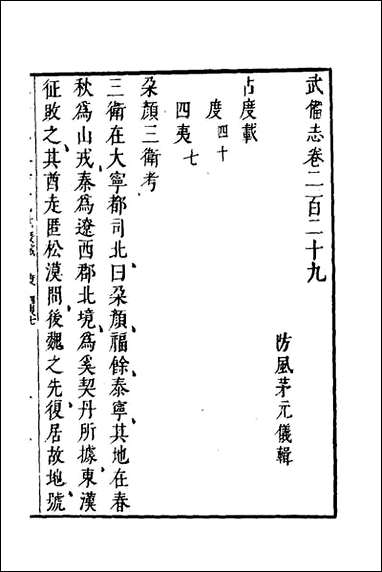 武備志卷二百二十九
防風茅元儀輯
占度載
度四十
四夷七
朶顔三衛考
三衛在大寧都司北曰朶顔福餘泰寧其地在春
秋為山戎秦為遼西郡北境為奚契丹所據東漢
征敗之其酋走匿松漠間後魏之先復居故地號